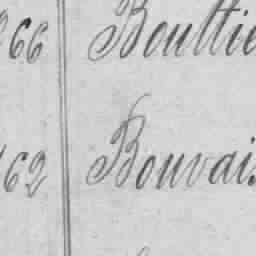 66 Boultie
62 Bouvais